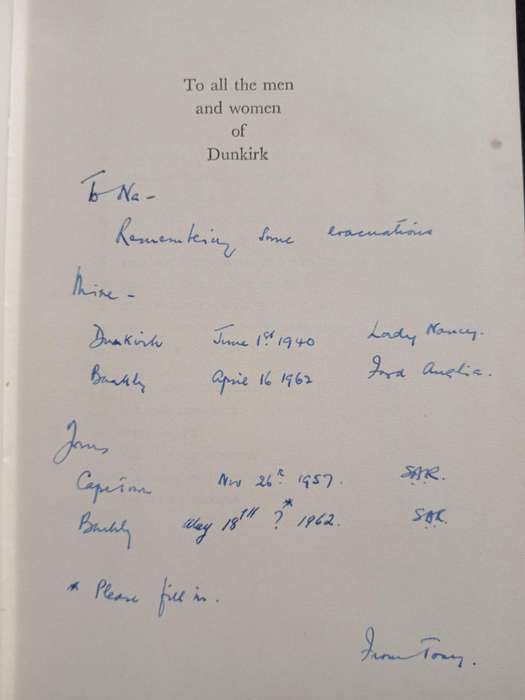 To all the men
and women
of
Dunkirk
To Na -
Remembering some evacuations
Mine -
Dunkirk June 1st 1940 Lady Nancy.
Barkly April 16 1962 Ford Anglia.
Yours
Capetown Nov 26th 1957. S.A.R.
Barkly May 18TH ?* 1962. S.A.R.
* Please fill in.
From Tony.